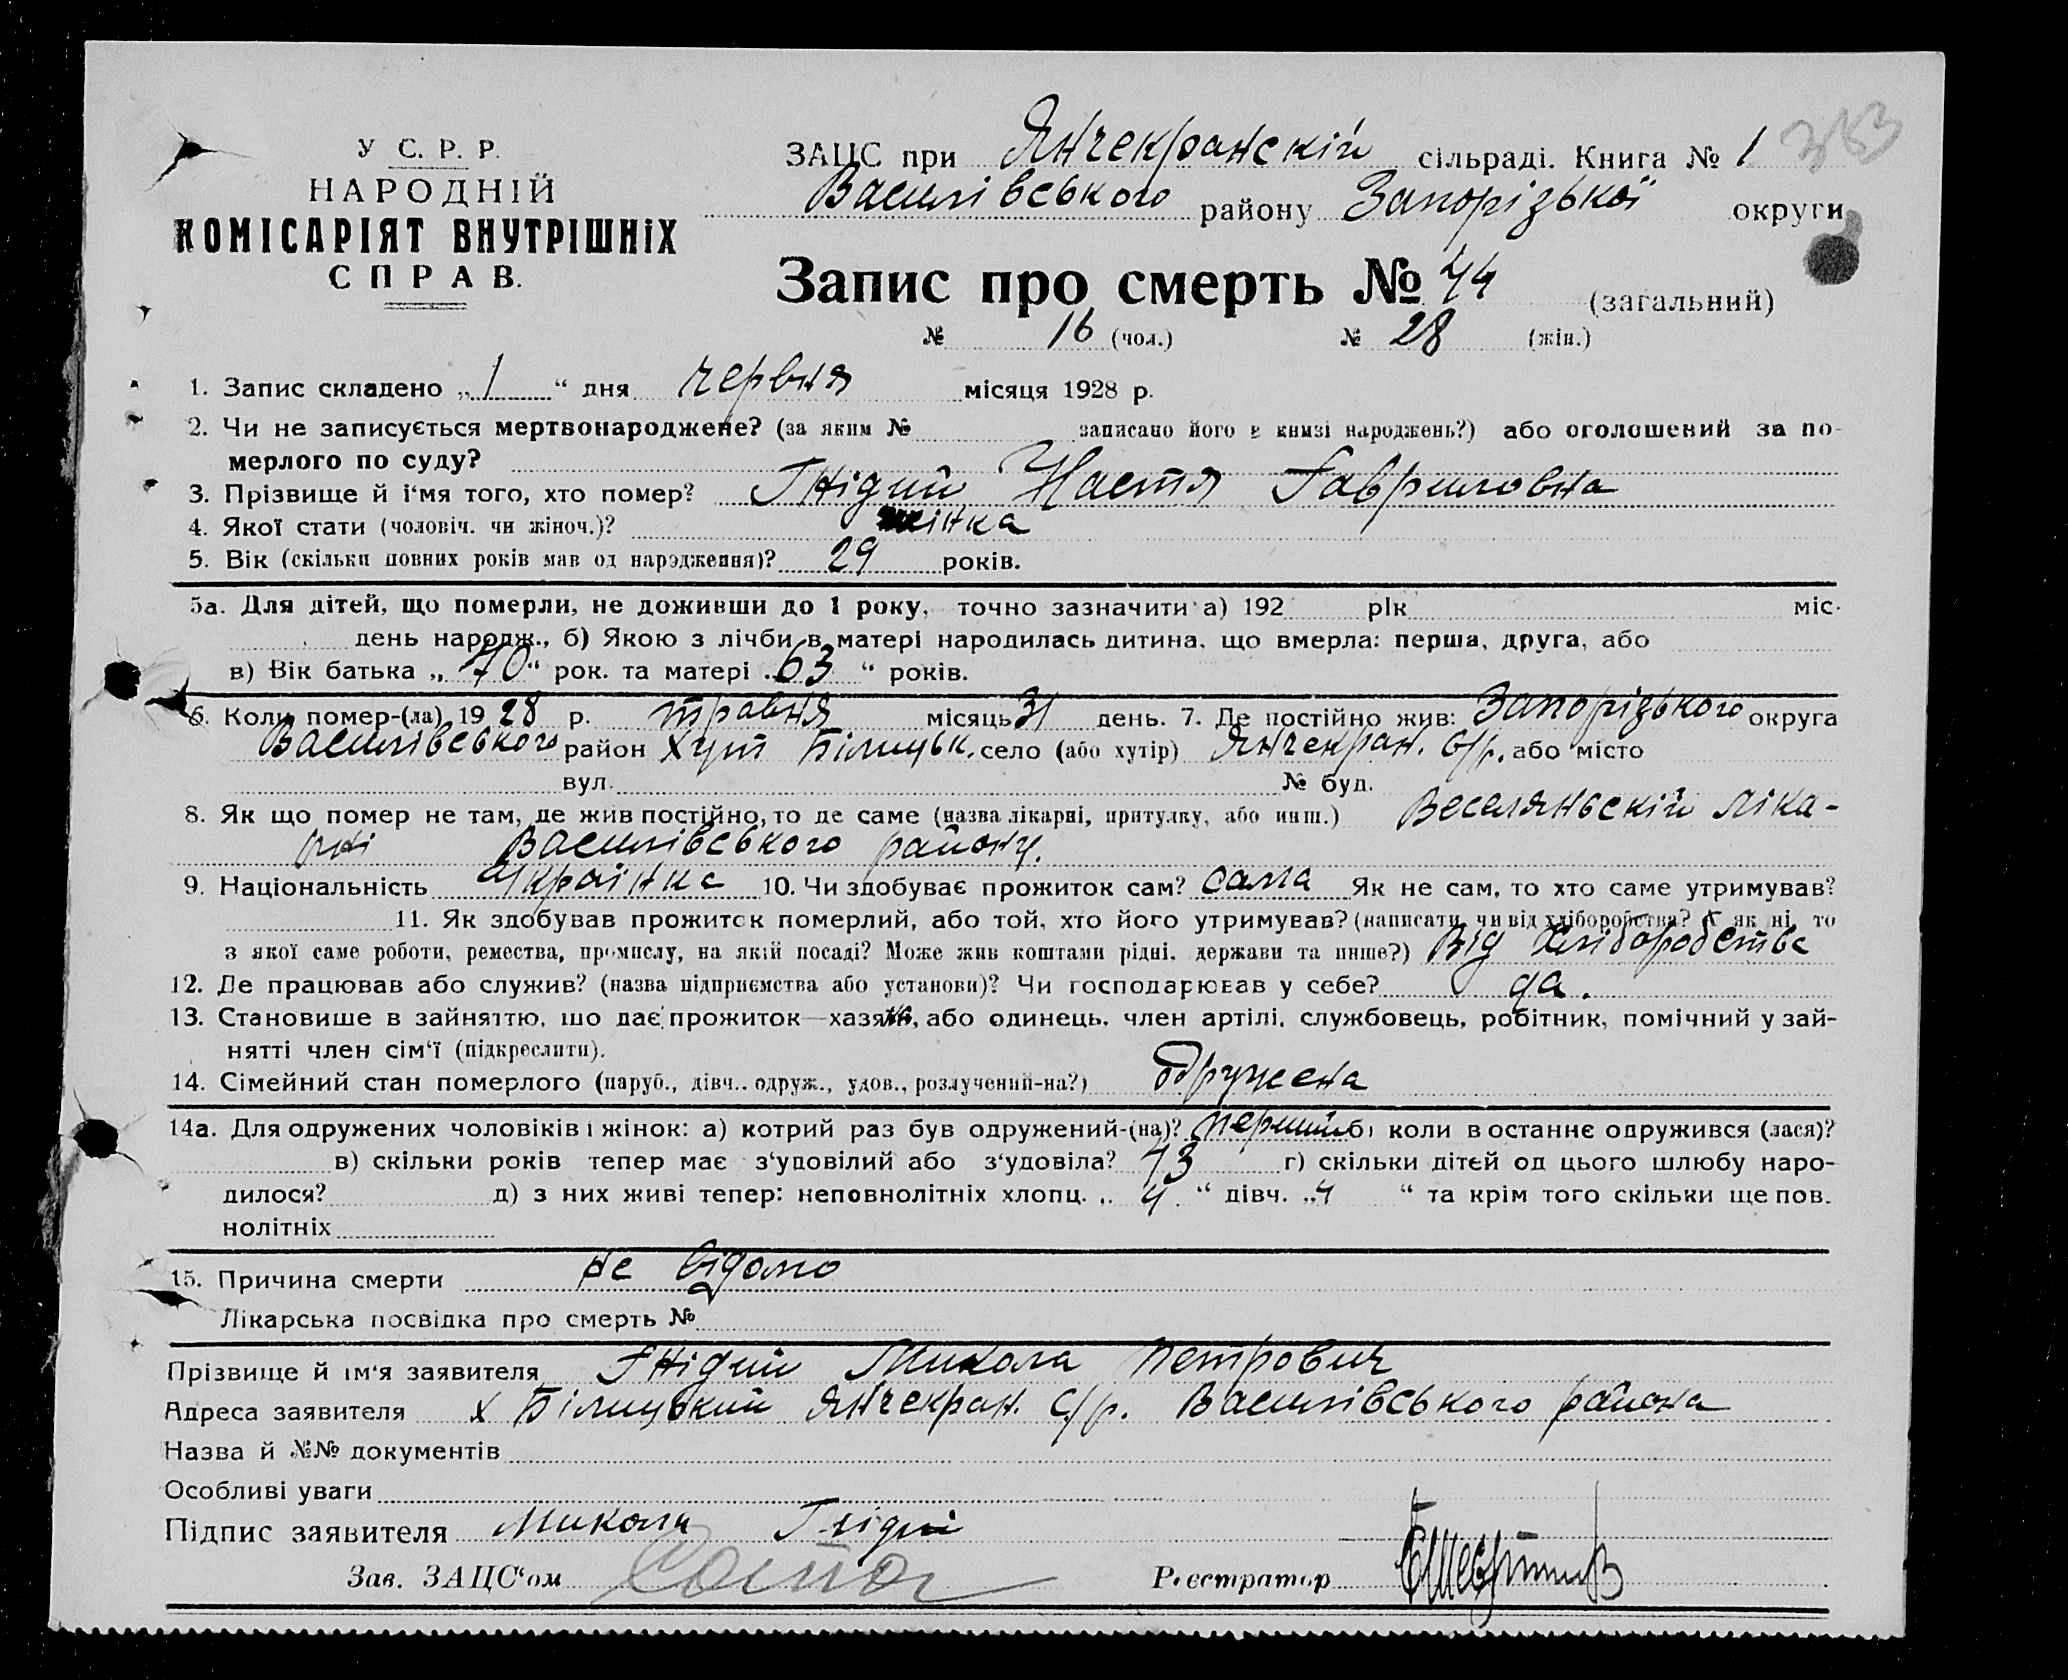 У С. Р. Р.
НАРОДНІЙ
КОМІСАРІЯТ ВНУТРІШНІХ
СПРАВ.
ЗАЦС при Янчекранскій сільраді. Книга № 1 383
Василівського району Запорізької округи
Запис про смерть № 44 (загальний)
№ 16 (чол.) № 28 (жін.)
1. Запис складено „1“ дня червня місяця 1928 р.
2. Чи не записується мертвонароджене? (за яким № записано його в книзі народжень?) або оголошений за по-
мерлого по суду?
3. Прізвище й і'мя того, хто помер? Гнідий Настя Гавриловна
4. Якої стати (чоловіч. чи жіноч.)? жінка
5. Вік (скільки повних років мав од народження)? 29 років.
5а. Для дітей, що померли, не доживши до 1 року, точно зазначити а) 192 рік міс.
день народж., б) Якою з лічби в матері народилась дитина, що вмерла: перша, друга, або
в) Вік батька „70“ рок. та матері „63“ років.
6. Коли помер-(ла) 1928 р. травня місяць 31 день. 7. Де постійно жив: Запорізького округа
Василівського район Хут Білицьк. село (або хутір) Янчекран. с/р. або місто
вул. № буд.
8. Як що помер не там, де жив постійно, то де саме (назва лікарні, притулку, або инш.) Веселяньскій ліка-
рні Василівського району.
9. Національність Українка 10. Чи здобуває прожиток сам? сама Як не сам, то хто саме утримував?
11. Як здобував прожиток померлий, або той, хто його утримував? (написати, чи від хліборобства? А як ні, то
з якої саме роботи, ремества, промислу, на якій посаді? Може жив коштами рідні, держави та инше?) Від хліборобства
12. Де працював або служив? (назва підприємства або установи)? Чи господарював у себе? да.
13. Становище в зайняттю, що дає прожиток—хазяїн, або одинець, член артілі, службовець, робітник, помічний у зай-
нятті член сім'ї (підкреслити).
14. Сімейний стан померлого (паруб., дівч., одруж., удов., розлучений-на?) одружена
14а. Для одружених чоловіків і жінок: а) котрий раз був одружений-(на)? перший б) коли в останнє одружився (лася)?
в) скільки років тепер має з'удовілий або з'удовіла? 43 г) скільки дітей од цього шлюбу наро-
дилося? д) з них живі тепер: неповнолітніх хлопц. „4“ дівч. „4“ та крім того скільки ще пов.
нолітніх
15. Причина смерти не відомо
Лікарська посвідка про смерть №
Прізвище й ім'я заявителя Гнідий Микола Петрович
Адреса заявителя х Білицький Янчекран. с/р. Василівського района
Назва й №№ документів
Особливі уваги
Підпис заявителя Микола Гнідий
Зав. ЗАЦС'ом
Реєстратор